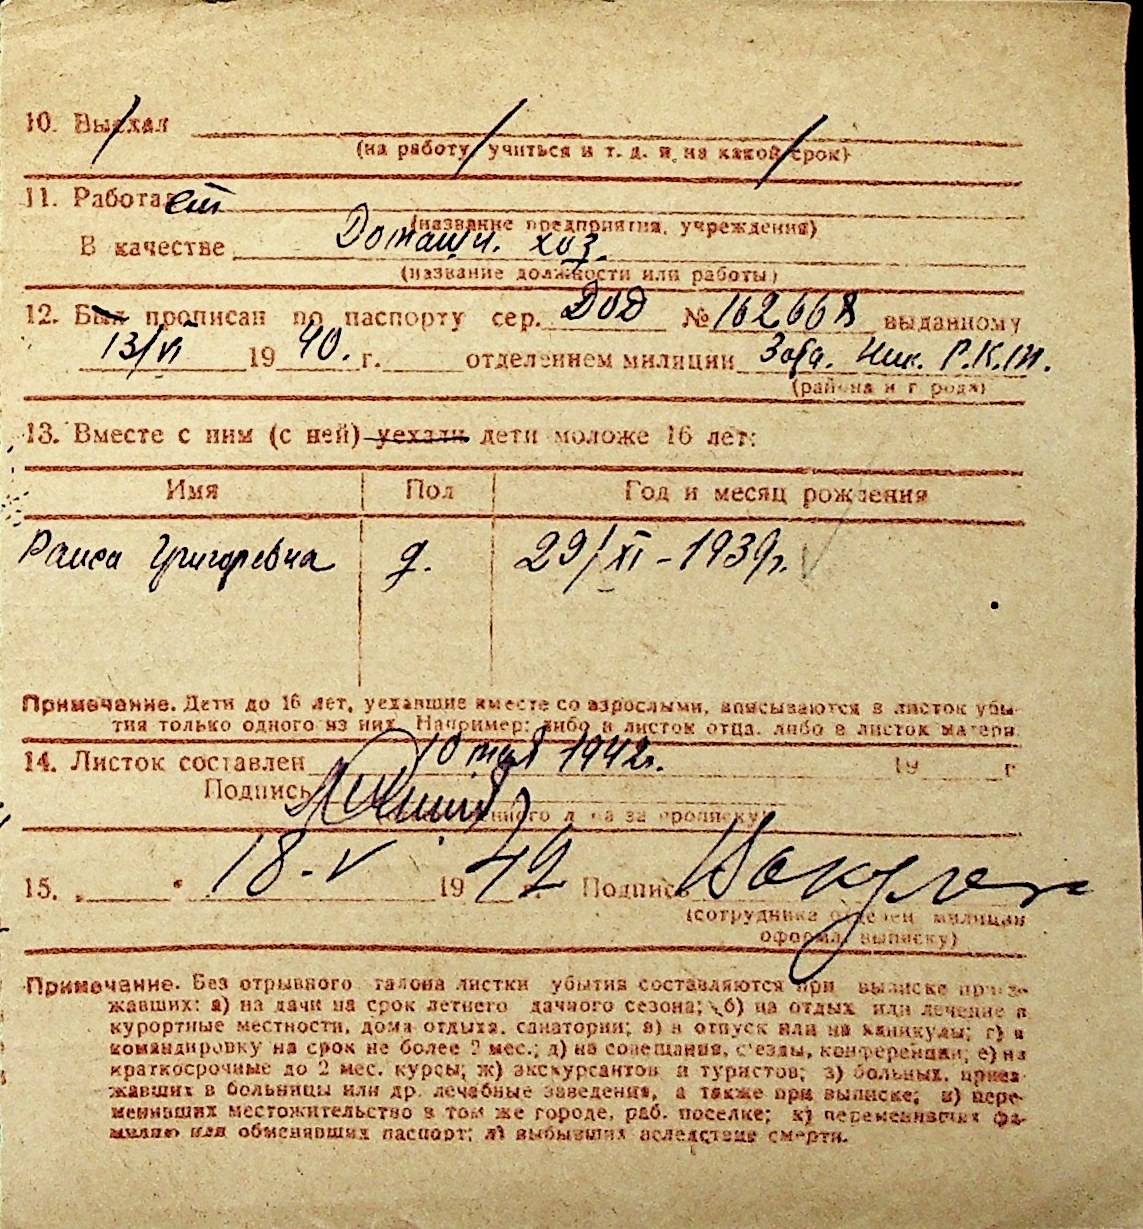 10. Выехал
(на работу учиться и т. д. и на какой срок)
11. Работает
(название предприятия, учреждения)
В качестве Домашн. хоз.
(название должности или работы)
12. Был прописан по паспорту сер. № 162668 выданному
13/VI 1940. г. отделением милиции Р.К.М.
(района и города)
13. Вместе с ним (с ней) уехали дети моложе 16 лет:
Имя Пол Год и месяц рождения
Раиса Григоревна д. 29/XI-1939г.
Примечание. Дети до 16 лет, уехавшие вместе со взрослыми, вписываются в листок убы-
тия только одного из них. Например: либо в листок отца, либо в листок матери.
14. Листок составлен 10 мая 1942г. 19 г
Подпись
за прописку)
15. „ “ 18-V 1942 Подпись
(сотрудника отделен. милиции
оформл. выписку)
Примечание. Без отрывного талона листки убытия составляются при выписке приез-
жавших: а) на дачи на срок летнего дачного сезона; б) на отдых или лечение в
курортные местности, дома отдыха, санатории; в) в отпуск или на каникулы; г) в
командировку на срок не более 2 мес.; д) на совещания, с'езды, конференции; е) на
краткосрочные до 2 мес. курсы; ж) экскурсантов и туристов; з) больных, приез-
жавших в больницы или др. лечебные заведения, а также при выписке; и) пере-
менивших местожительство в том же городе, раб. поселке; к) переменивших фа-
милию или обменявших паспорт; л) выбывших вследствие смерти.